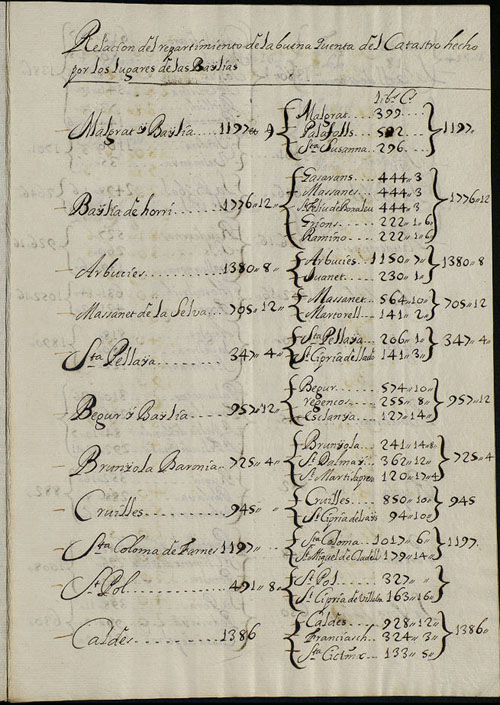 Relacion del repartimiento de la buena quenta del Catastro hecho
por los lugares de las Baylias
Lib.s C.s
Malgrat y Baylia 1197
Malgrat 399
Palafolls 502
Sta Susanna 296
1197
Baylia de horri 1776,, 12,,
Gasarans 444,, 3
Massanes 444,, 3
444,, 3
Grions 222,, 1,, 6
Ramino 222,, 1,, 6
1776,, 12
Arbucies 1380,, 8,,
Arbucies 1150,, 7,,
Juanet 230,, 1,,
1380,, 8
Massanet de la Selva 705,, 12,,
Massanet 564,, 10,,
Martorell 141,, 2,,
705,, 12
Sta Pellaya 347,, 4,,
Sta Pellaya 206,, 1,,
St Cipria de llado 141,, 3,,
347,, 4
Begur y Baylia 957,, 12,,
Begur 574,, 10,,
regencos 255,, 8,,
Esclanya 127,, 14,,
957,, 12
Brunyola Baronia 725,, 4,,
Brunyola 241,, 14,, 8
St Dalmay 362,, 12,,
St Marti 120,, 17,, 4
725,, 4
Cruilles 945,,
Cruilles 850,, 10,,
St Cipria 94,, 10,,
945
Sta Coloma de Farnes 1197,,
Sta Coloma 1017,, 6,,
St Miquel de Cladells 179,, 14,,
1197
St Pol 491,, 8,,
St Pol 327,, ,,
St Cipria de 163,, 16,,
Caldes 1386
Caldes 928,, 12,,
Franciach 324,, 3,,
Sta 133,, 5,,
1386,,